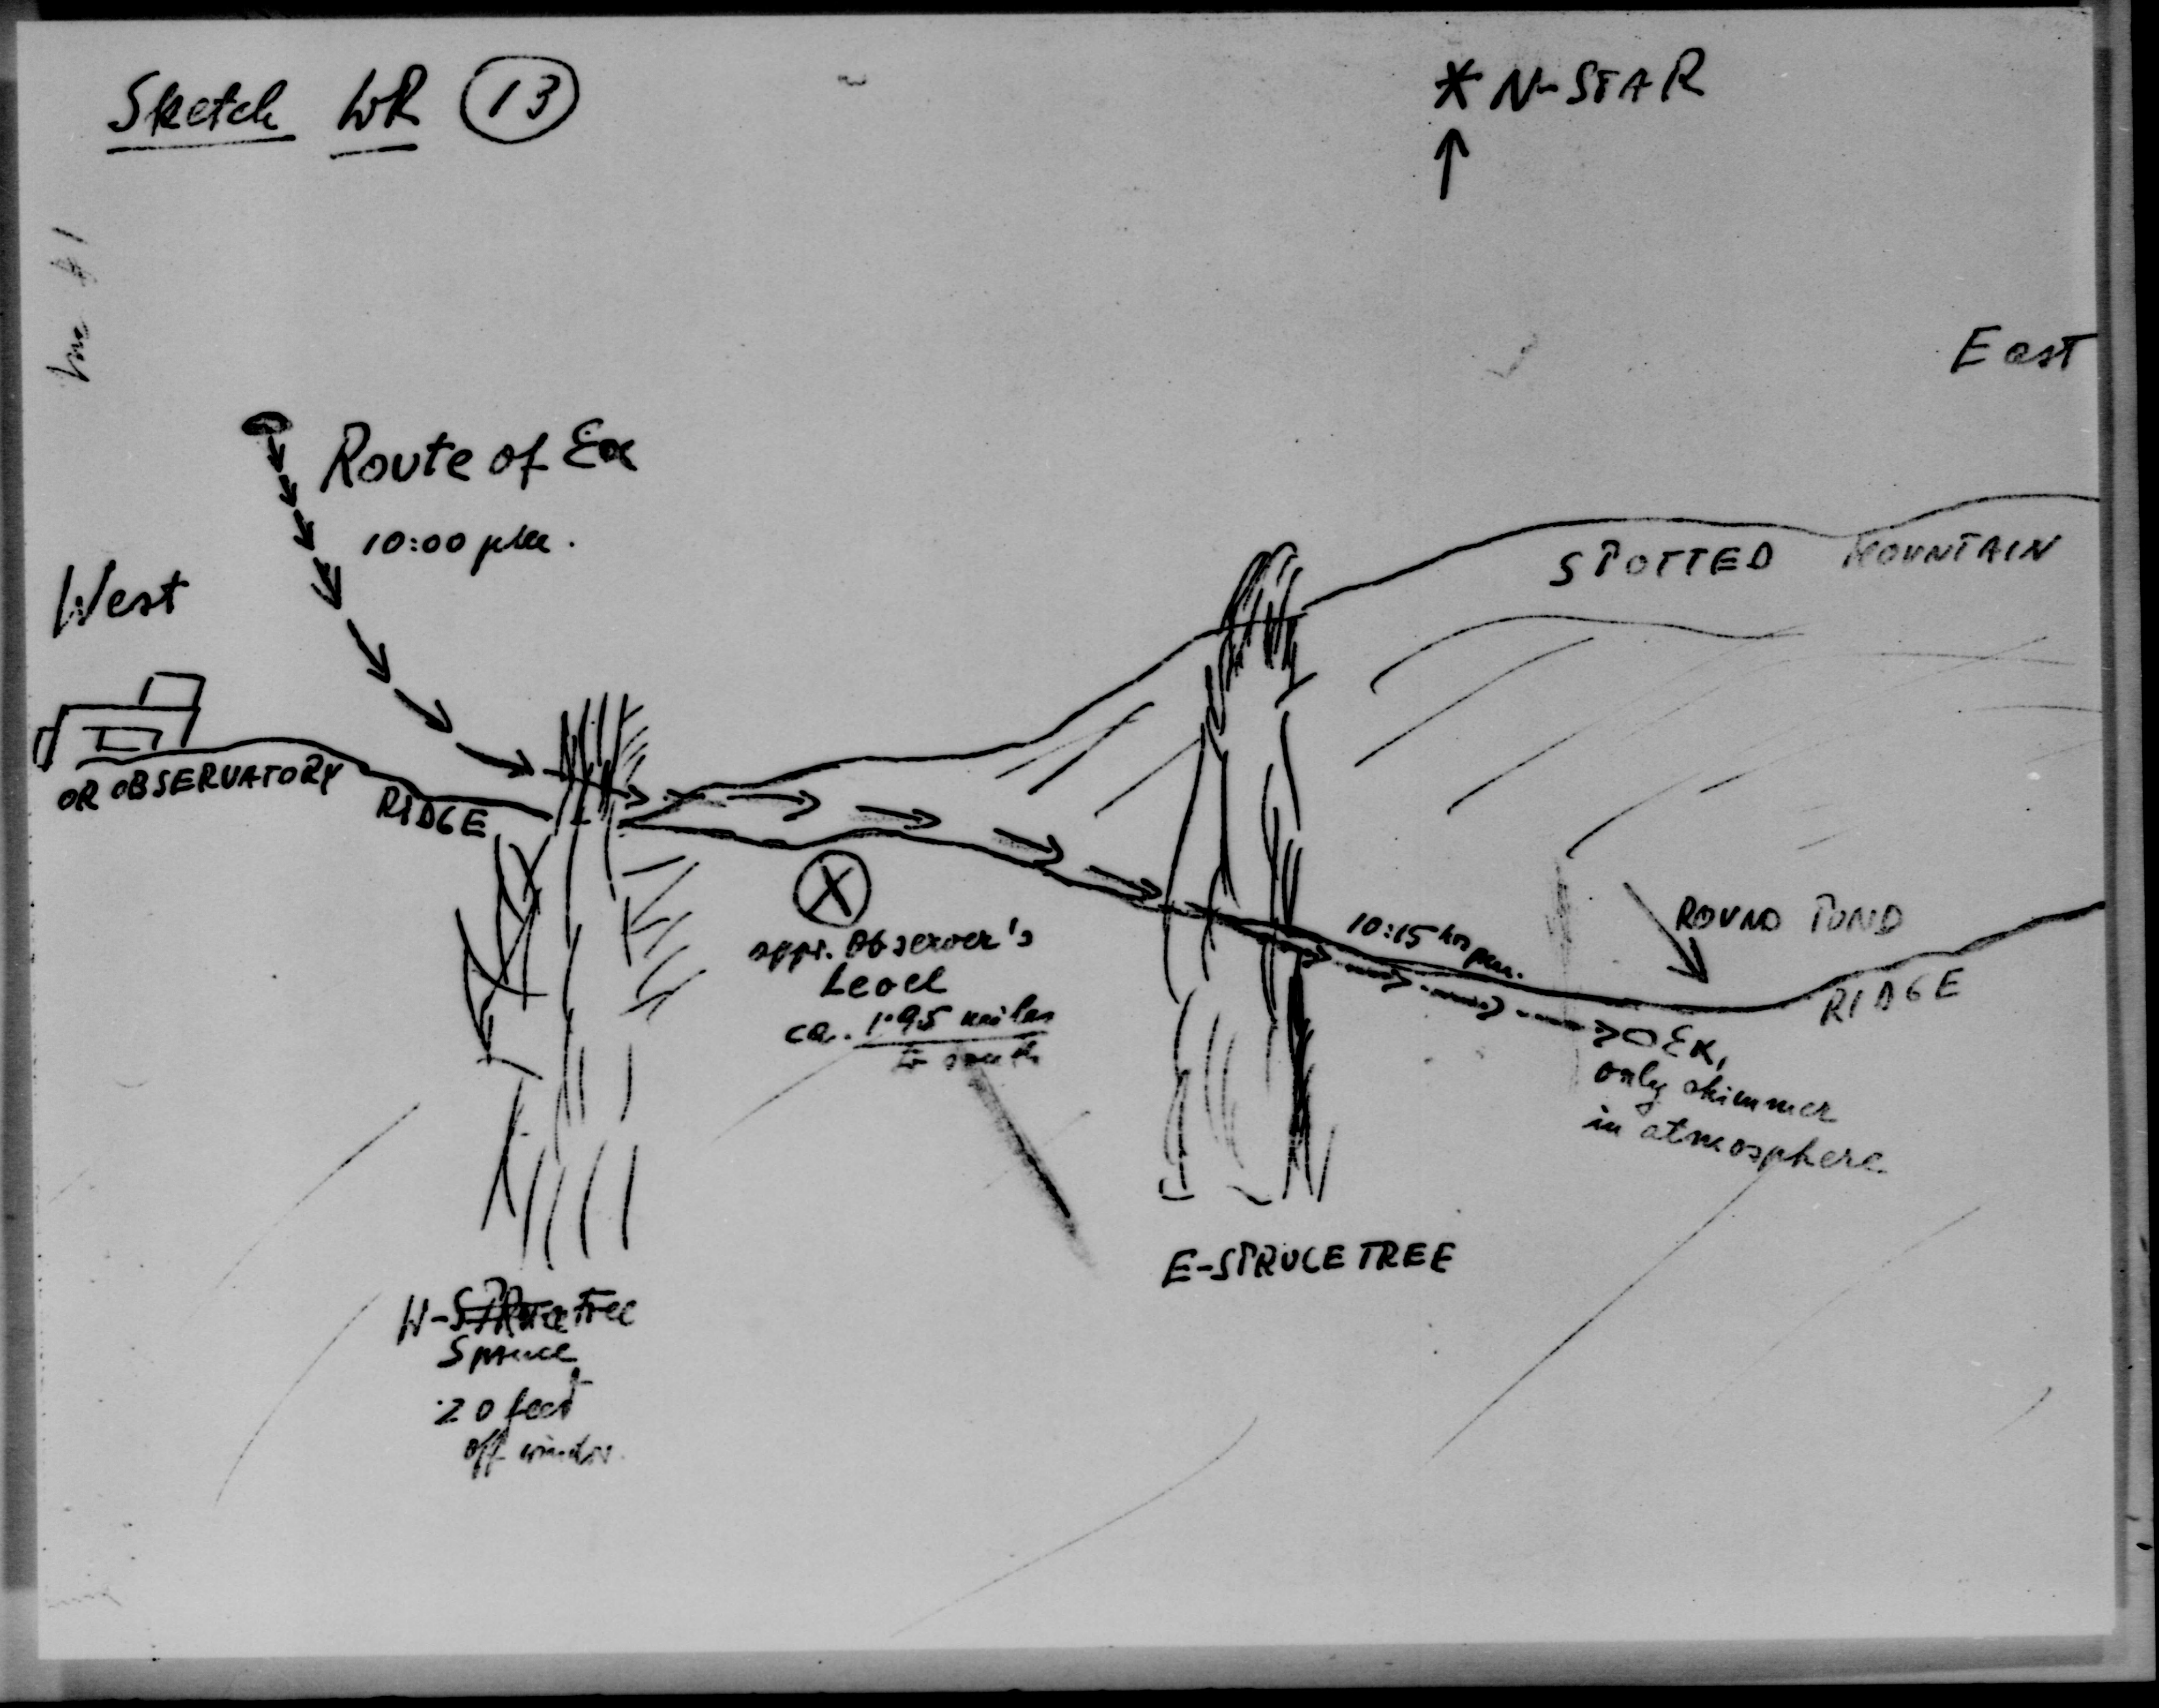 Sketch WR 13
* N-STAR
East
Route of Ea
10:00 pm.
West
SPOTTED MOUNTAIN
OR OBSERVATORY
RIDGE
X
appr. Observer's
Level
ca. 1.95 miles
to south
10:15 hrs pm.
ROUND POND
RIDGE
Ea,
only shimmer
in atmosphere
E-SPRUCE TREE
W-SPRuce Tree
Spruce
20 feet
off window.